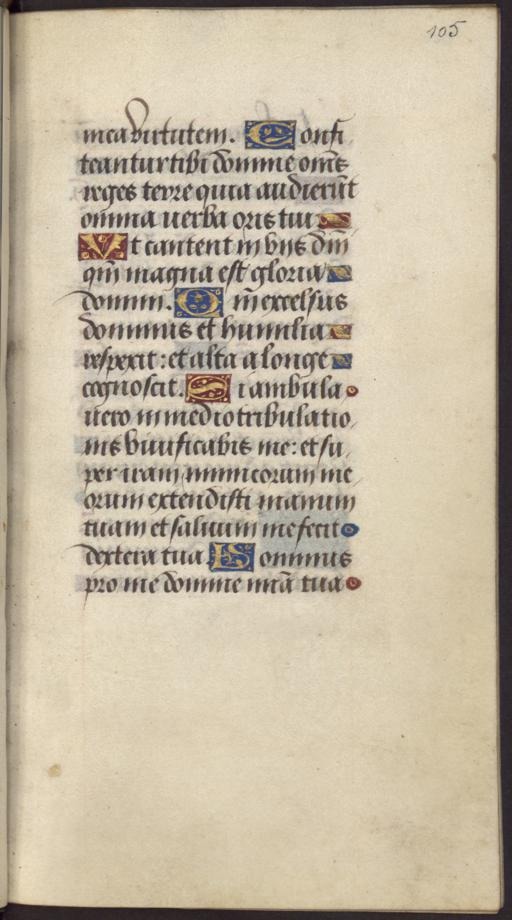 105
mea virtutem. Confi
teantur tibi domine om̄s
reges terre quia audierūt
omnia uerba oris tui
Vt cantent in viis dn̄i
qm̄ magna est gloria
domini. Qm̄ excelsus
dominus et humilia
respexit: et alta a longe
cognoscit. Si ambula
uero in medio tribulatio
nis viuificabis me: et su
per iram inimicorum me
orum extendisti manum
tuam et saluum me fecit
dextera tua. Dominus
pro me domine mīa tua